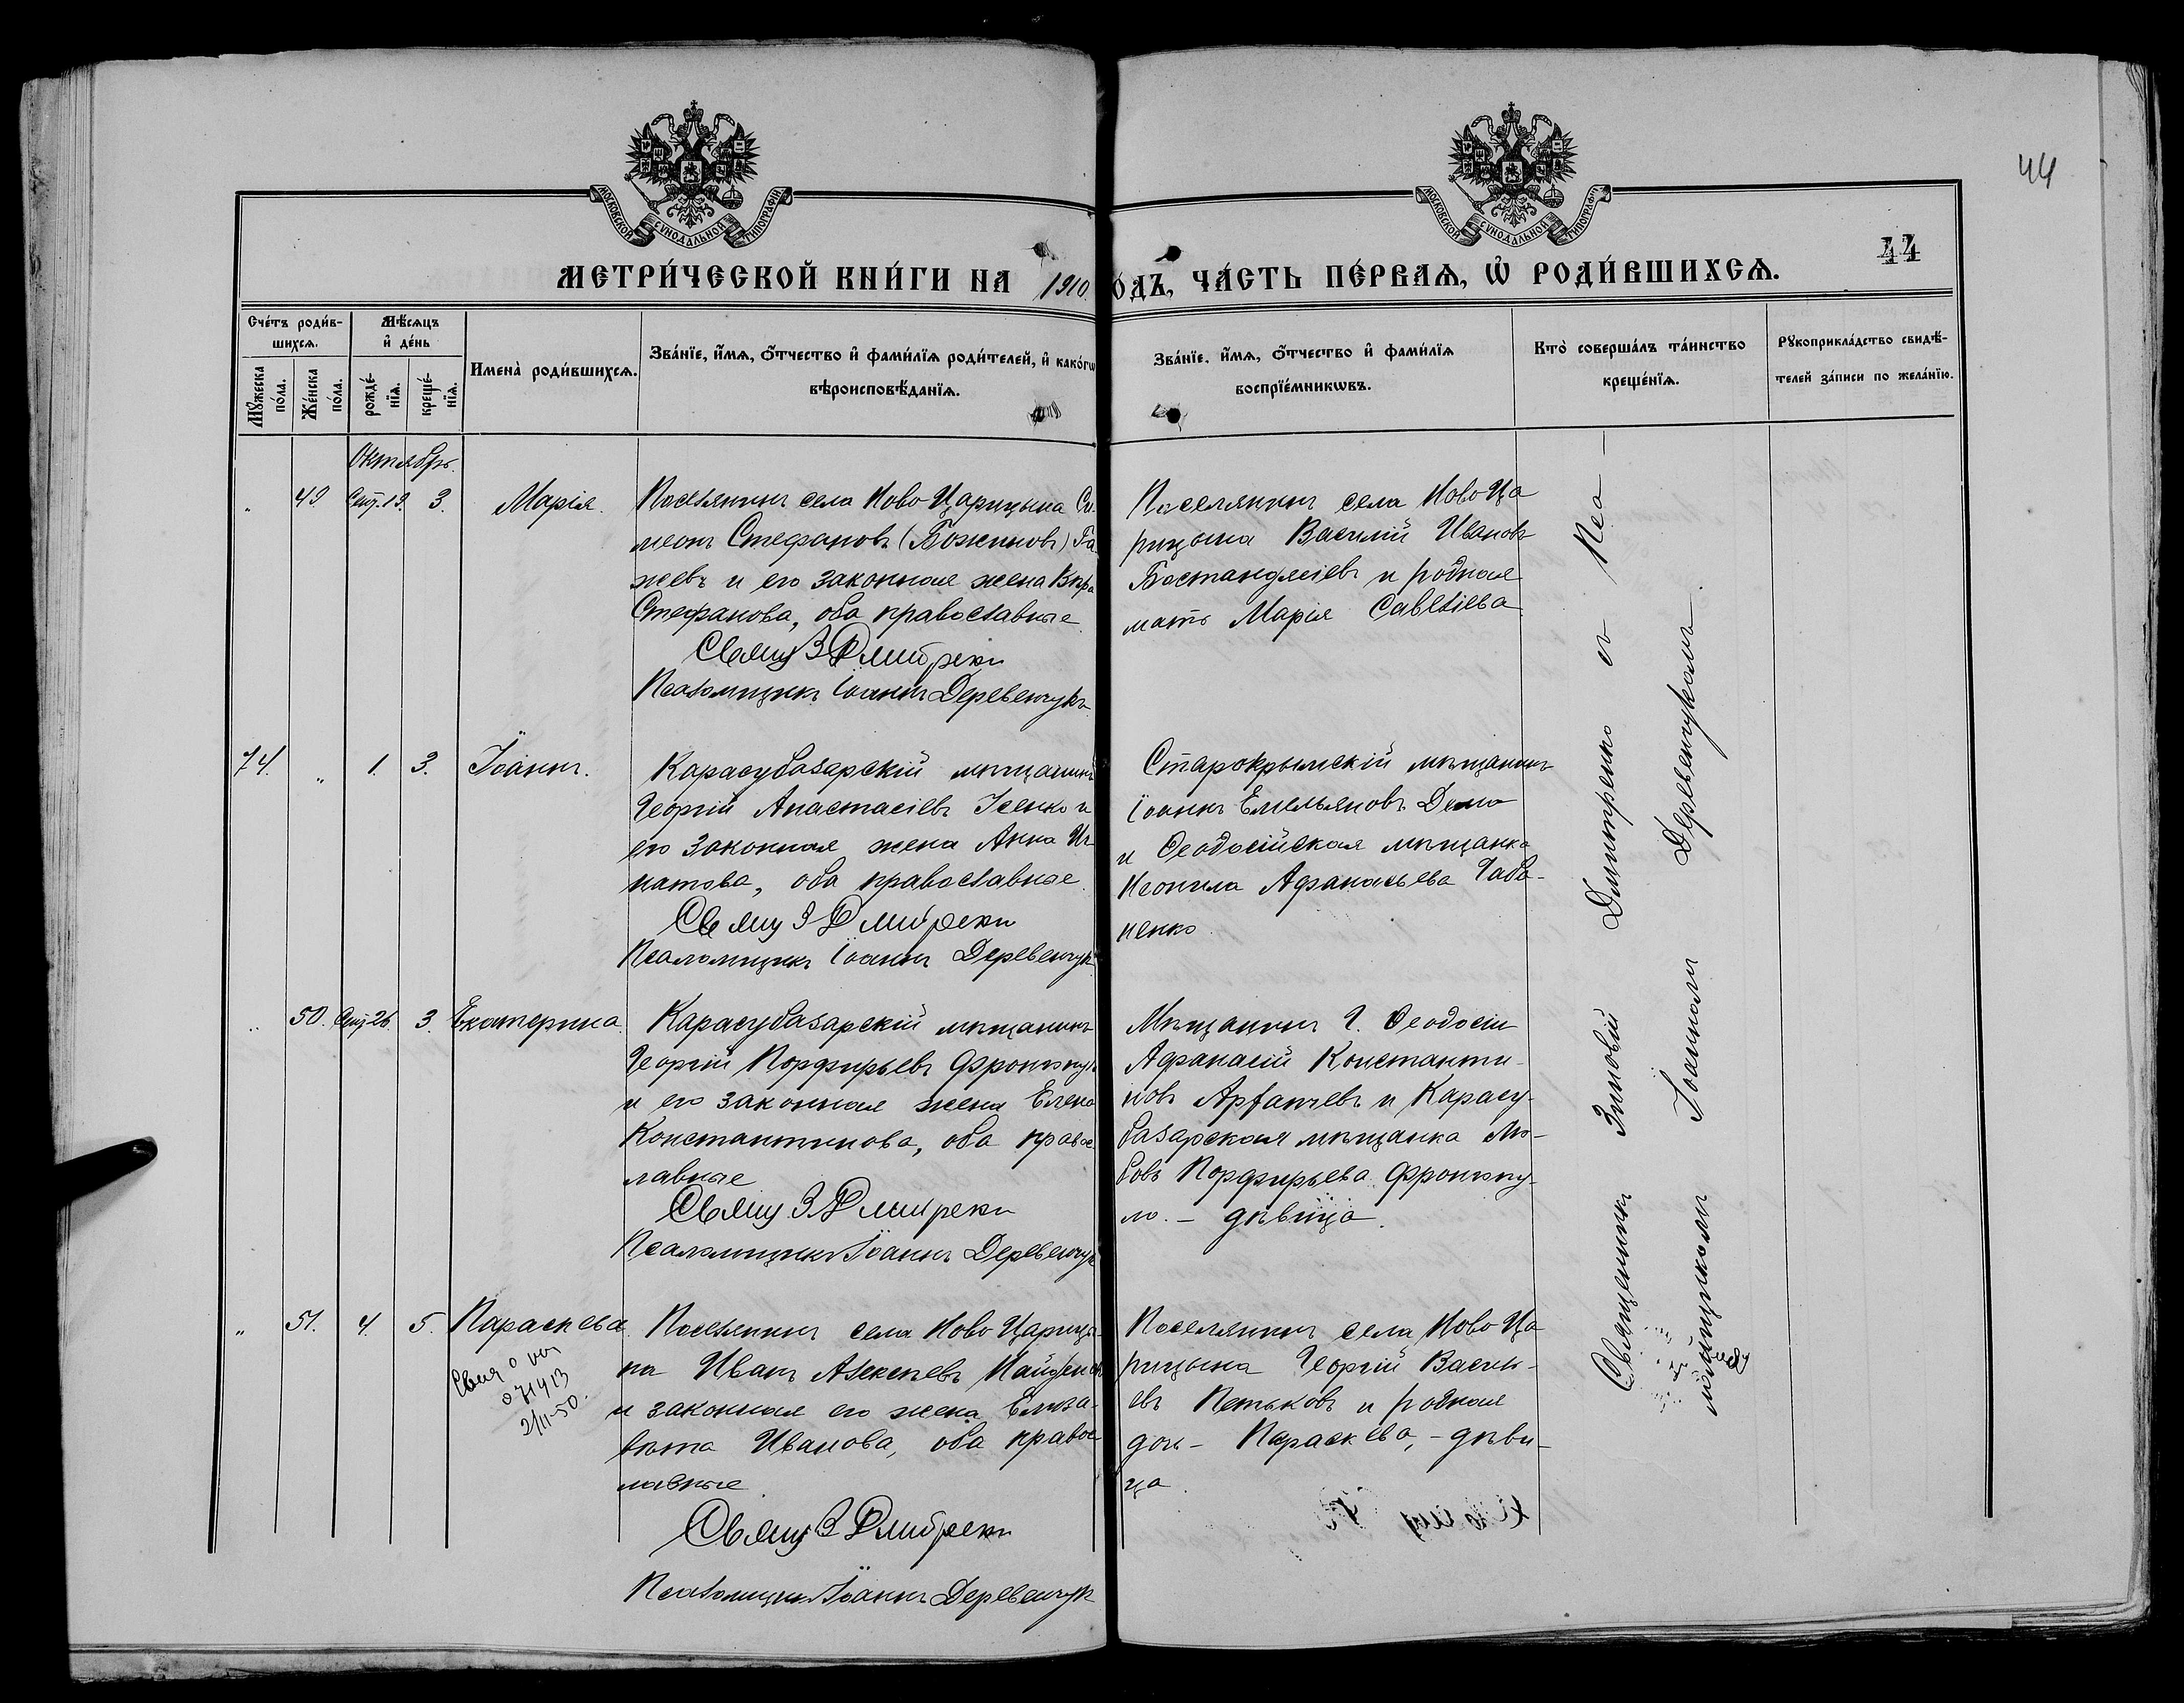 44
МОСКОВСКОЙ СУНОДАЛЬНОЙ ТИПОГРАФІИ
МОСКОВСКОЙ СУНОДАЛЬНОЙ ТИПОГРАФІИ
44
МЕТРИ́ЧЕСКОЙ КНИ́ГИ НА 1910
О́ДЪ, ЧА́СТЬ ПЕ́РВАѦ, Ѡ҆ РОДИ́ВШИХСѦ.
Сче́тъ роди́в-
шихсѧ.
Мꙋ́жеска
по́ла.
Же́нска
по́ла.
Мѣ́сѧцъ
и҆ де́нь
рожде́-
нїѧ.
креще́-
нїѧ.
Имена̀ роди́вшихсѧ.
Зва́нїе, и҆́мѧ, ѻ҆́тчество и҆ фами́лїѧ роди́телей, и҆ како́гѡ
вѣроисповѣ́данїѧ.
Зва́нїе, и҆́мѧ, ѻ҆́тчество и҆ фами́лїѧ
воспрїе́мникѡвъ.
Кто̀ соверша́лъ та́инство
креще́нїѧ.
Рꙋкоприкла́дство свидѣ́-
телей за́писи по жела́нїю.
Октябрь.
" 49 Сент. 19. 3. Марія.
Поселянинъ села Ново Царицына Си-
меонъ Стефановъ (Божиновъ) Га
жевъ и его законная жена Кира
Стефанова, оба православные.
Свящ З Дмитренко
Псаломщикъ Іоаннъ Деревенчукъ
Поселянинъ села Ново Ца
рицына Василій Ивановъ
Бостанджіевъ и родная
мать Марія Савеліева
74. " 1. 3. Іоаннъ.
Карасубазарскій мѣщанинъ
Георгій Анастасіевъ Ісенко и
его законная жена Анна Иг-
натова, оба православные.
Свящ З Дмитренко
Псаломщикъ Іоаннъ Деревенчук
Старокрымскій мѣщанинъ
Іоаннъ Емельяновъ Демо
и Ѳеодосійская мѣщанка
Неонила Афанасьева Габа-
ненко.
" 50. Сент 26. 3. Екатерина.
Карасубазарскій мѣщанинъ
Георгій Порфирьевъ
и его законная жена Елена
Константинова, оба правос
лавные
Свящ. З. Дмитренко
Псаломщикъ Іоаннъ Деревенчук
Мѣщанинъ г. Ѳеодосіи
Афанасій Константи-
новъ и Карасу-
базарская мѣщанка Лю-
бовь Порфирьева
ло. – дѣвица.
" 51. 4. 5. Параскева.
2/II-50.
Поселянинъ села Ново Цариц
на Иванъ Алексѣевъ Найденовъ
и законная его жена Елиза-
вета Иванова, оба правос
лавные
Свящ З Дмитренко
Псаломщикъ Іоаннъ Деревенчук
Поселянинъ села Ново Ца
рицына Георгій Василь-
евъ Петьковъ и родная
дочь – Параскева, – дѣви-
ца.
Священникъ Зиновій Дмитренко съ Пса
ломщикомъ Іоанномъ Деревенчукомъ.